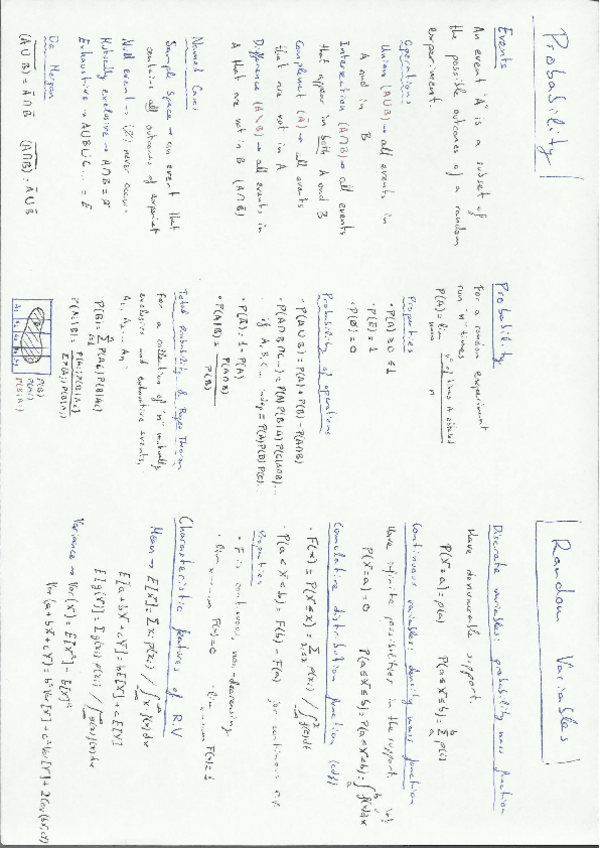 Probability
Events
An event "A" is a subset of
the possible outcomes of a random
experiment.
Operations
Union (A∪B) → all events in
A and in B
Intersection (A∩B) → all events
that appear in both A and B
Complement (Ā) → all events
that are not in A
Difference (A\B) → all events in
A that are not in B (A∩B̄)
Named Cases
Sample Space → an event that
contains all outcomes of
Null event → (Ø) never occurs
Mutually exclusive → A∩B = Ø
Exhaustive → A∪B∪C... = E
De Morgan
(A∪B)‾ = Ā∩B̄ (A∩B)‾ : Ā∪B̄
Probability
For a random experiment
run "n" times
P(A) = lim nº of times A / n
Properties
· P(A) ≥ 0 ≤ 1
· P(E) = 1
· P(Ø) = 0
Probability of operations
· P(A∪B) = P(A) + P(B) - P(A∩B)
· P(A∩B∩C...) = P(A)P(B|A)P(C|A∩B)...
if A, B, C... indep = P(A)P(B)P(C)...
· P(Ā) = 1 - P(A)
· P(A|B) = P(A∩B) / P(B)
Total Probability & Bayes Theorem
For a collection of "n" mutually
exclusive and exhaustive events,
A₁, A₂ ... Aₙ:
P(B) = Σ P(Aᵢ)P(B|Aᵢ)
P(Aᵢ|B) = P(Aᵢ)P(B|Aᵢ) / Σ P(Aᵢ)P(B|Aᵢ)
P(B)
P(Aᵢ)
P(B|Aᵢ)
Random Variables
Discrete variables: probability mass function
Have denumerable support.
P(X=a) = p(a) P(a≤X≤b) = Σ p(i)
Continuous variables: density mass function
Have infinite possibilities in the support.
P(X=a) = 0 P(a≤X≤b) = P(a<X<b) = ∫ f(x)dx
Cumulative distribution function (cdf)
· F(x) = P(X≤x) = Σ p(xᵢ) / ∫ f(t)dt
· P(a<X≤b) = F(b) - F(a) for continuous r.v.
Properties
· F is continuous, non-decreasing
· lim F(x) = 0 · lim F(x) = 1
Characteristic features of R.V
Mean → E[X] = Σ xᵢ p(xᵢ) / ∫ x f(x)dx
E[a+bX+cY] = bE[X] + cE[Y]
E[g(X)] = Σ g(xᵢ)p(xᵢ) / ∫ g(x)f(x)dx
Variance → Var(X) = E[X²] - E[X]²
Var(a+bX+cY) = b²Var[X] + c²Var[Y] + 2Cov(bX,cY)